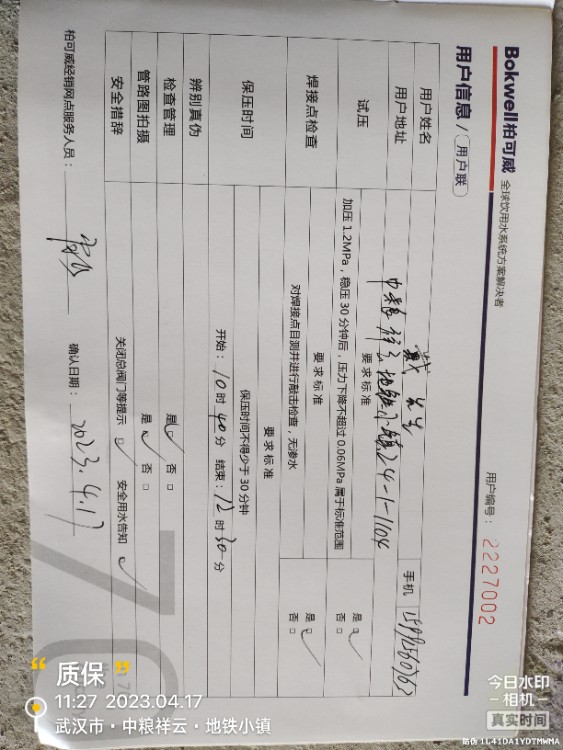 Bokwell柏可威 全球饮用水系统方案解决者
用户信息 / 用户联
用户编号： 2227002
用户姓名 戴先生 手机
用户地址 中粮祥云地铁小镇24-1-1104
要求标准
试压 加压 1.2MPa，稳压 30 分钟后，压力下降不超过 0.06MPa 属于标准范围 是 ✓ 否 □
要求标准
焊接点检查 对焊接点目测并进行敲击检查，无渗水 是 ✓ 否 □
要求标准
保压时间 保压时间不得少于 30 分钟
开始：10 时 40 分 结束：12 时 30 分
辨别真伪
检查管理 是 ✓ 否 □
管路图拍摄 是 ✓ 否 □
安全措辞 关闭总阀门等提示 ✓ 安全用水告知 ✓
柏可威经销网点服务人员： 确认日期： 2023.4.17
“质保”
11:27 2023.04.17
武汉市・中粮祥云・地铁小镇
今日水印
-相机-
真实时间
防伪 1L41DA1YDTMWMA